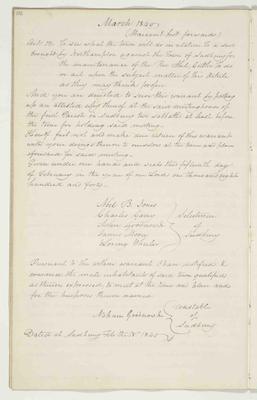 March 1840
(Warrant bro't forward)
Art. To see what the Town will do in relation to a suit
brought by Northampton against the Town of Sudbury for
the maintenance of the To do
or act upon the subject matter of this Article
as they may think proper
And you are directed to serve this warrant by posting
up an attested copy thereof at the meetinghouse of
the first Parish in Sudbury two Sabbaths at least before
the time for holding said meeting.
Hereof fail not and make due return of this warrant
with your doings thereon to ourselves at the time and place
aforesaid for said meeting.
Given under our hands and seals this fifteenth day
of February in the year of our Lord one thousand eight
hundred and forty.
Abel B. Jones
Charles Gerry Selectmen
John Goodnow of
James Moore Sudbury
Loring Wheeler
Pursuant to the within warrant I have notified &
warned the male inhabitants of said town qualified
as therein expressed, to meet at the time and place and
for the purposes therein named
Nahum Goodnow Constable
of
Sudbury
Dated at Sudbury Feb 1840